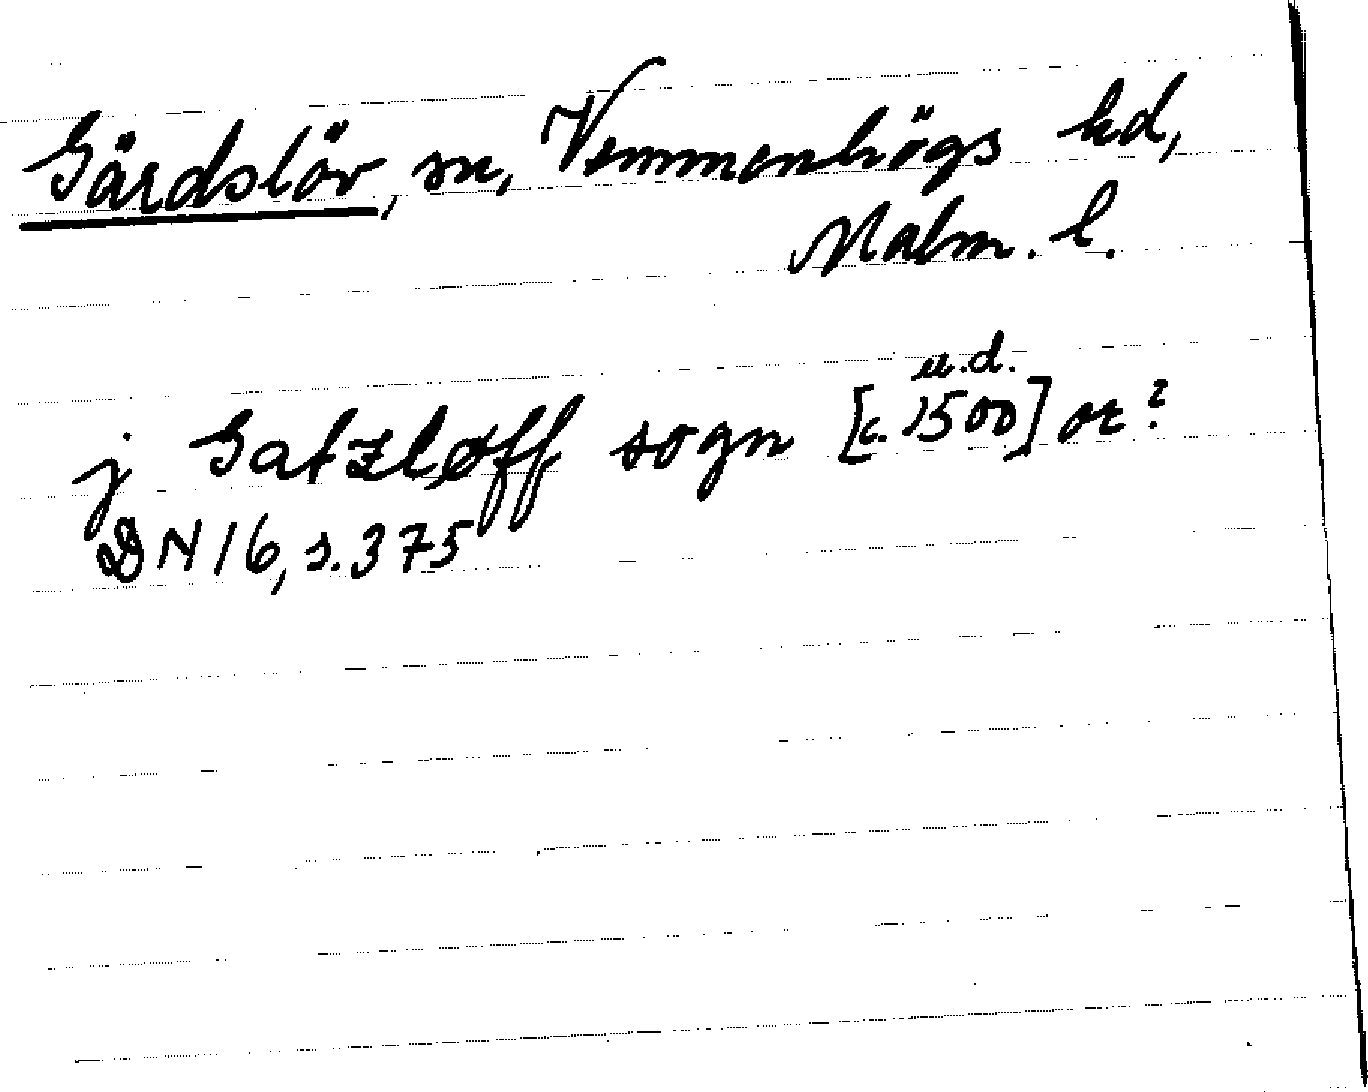 Gärdslöv, sn, Vemmenhögs hd,
Malm. l.
u.d.
j Gatzløff sogn [c. 1500] or?
DN 16, s. 375